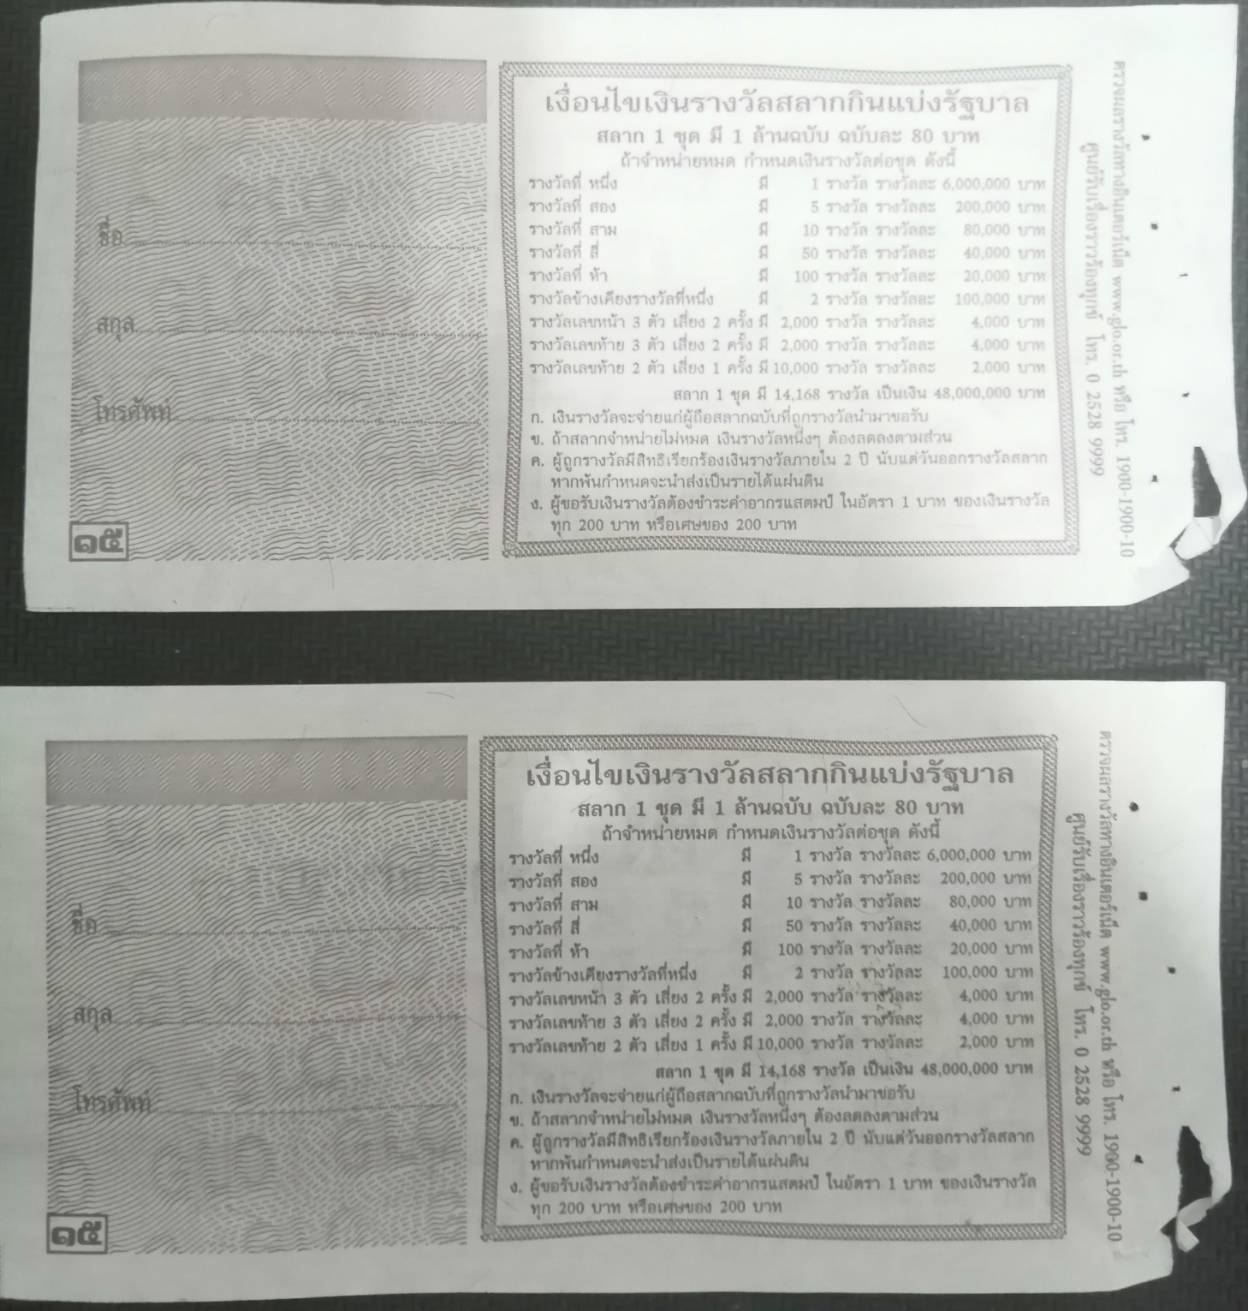 เงื่อนไขเงินรางวัลสลากกินแบ่งรัฐบาล
สลาก 1 ชุด มี 1 ล้านฉบับ ฉบับละ 80 บาท
ถ้าจำหน่ายหมด กำหนดเงินรางวัลต่อชุด ดังนี้
รางวัลที่ หนึ่ง มี 1 รางวัล รางวัลละ 6,000,000 บาท
รางวัลที่ สอง มี 5 รางวัล รางวัลละ 200,000 บาท
รางวัลที่ สาม มี 10 รางวัล รางวัลละ 80,000 บาท
รางวัลที่ สี่ มี 50 รางวัล รางวัลละ 40,000 บาท
รางวัลที่ ห้า มี 100 รางวัล รางวัลละ 20,000 บาท
รางวัลข้างเคียงรางวัลที่หนึ่ง มี 2 รางวัล รางวัลละ 100,000 บาท
รางวัลเลขหน้า 3 ตัว เสี่ยง 2 ครั้ง มี 2,000 รางวัล รางวัลละ 4,000 บาท
รางวัลเลขท้าย 3 ตัว เสี่ยง 2 ครั้ง มี 2,000 รางวัล รางวัลละ 4,000 บาท
รางวัลเลขท้าย 2 ตัว เสี่ยง 1 ครั้ง มี 10,000 รางวัล รางวัลละ 2,000 บาท
สลาก 1 ชุด มี 14,168 รางวัล เป็นเงิน 48,000,000 บาท
ก. เงินรางวัลจะจ่ายแก่ผู้ถือสลากฉบับที่ถูกรางวัลนำมาขอรับ
ข. ถ้าสลากจำหน่ายไม่หมด เงินรางวัลหนึ่งๆ ต้องลดลงตามส่วน
ค. ผู้ถูกรางวัลมีสิทธิเรียกร้องเงินรางวัลภายใน 2 ปี นับแต่วันออกรางวัลสลาก
หากพ้นกำหนดจะนำส่งเป็นรายได้แผ่นดิน
ง. ผู้ขอรับเงินรางวัลต้องชำระค่าอากรแสตมป์ ในอัตรา 1 บาท ของเงินรางวัล
ทุก 200 บาท หรือเศษของ 200 บาท
ชื่อ
สกุล
โทรศัพท์
๑๕
ตรวจผลรางวัลทางอินเตอร์เน็ต www.glo.or.th หรือ โทร. 1900-1900-10
ศูนย์รับเรื่องราวร้องทุกข์ โทร. 0 2528 9999
เงื่อนไขเงินรางวัลสลากกินแบ่งรัฐบาล
สลาก 1 ชุด มี 1 ล้านฉบับ ฉบับละ 80 บาท
ถ้าจำหน่ายหมด กำหนดเงินรางวัลต่อชุด ดังนี้
รางวัลที่ หนึ่ง มี 1 รางวัล รางวัลละ 6,000,000 บาท
รางวัลที่ สอง มี 5 รางวัล รางวัลละ 200,000 บาท
รางวัลที่ สาม มี 10 รางวัล รางวัลละ 80,000 บาท
รางวัลที่ สี่ มี 50 รางวัล รางวัลละ 40,000 บาท
รางวัลที่ ห้า มี 100 รางวัล รางวัลละ 20,000 บาท
รางวัลข้างเคียงรางวัลที่หนึ่ง มี 2 รางวัล รางวัลละ 100,000 บาท
รางวัลเลขหน้า 3 ตัว เสี่ยง 2 ครั้ง มี 2,000 รางวัล รางวัลละ 4,000 บาท
รางวัลเลขท้าย 3 ตัว เสี่ยง 2 ครั้ง มี 2,000 รางวัล รางวัลละ 4,000 บาท
รางวัลเลขท้าย 2 ตัว เสี่ยง 1 ครั้ง มี 10,000 รางวัล รางวัลละ 2,000 บาท
สลาก 1 ชุด มี 14,168 รางวัล เป็นเงิน 48,000,000 บาท
ก. เงินรางวัลจะจ่ายแก่ผู้ถือสลากฉบับที่ถูกรางวัลนำมาขอรับ
ข. ถ้าสลากจำหน่ายไม่หมด เงินรางวัลหนึ่งๆ ต้องลดลงตามส่วน
ค. ผู้ถูกรางวัลมีสิทธิเรียกร้องเงินรางวัลภายใน 2 ปี นับแต่วันออกรางวัลสลาก
หากพ้นกำหนดจะนำส่งเป็นรายได้แผ่นดิน
ง. ผู้ขอรับเงินรางวัลต้องชำระค่าอากรแสตมป์ ในอัตรา 1 บาท ของเงินรางวัล
ทุก 200 บาท หรือเศษของ 200 บาท
ชื่อ
สกุล
โทรศัพท์
๑๕
ตรวจผลรางวัลทางอินเตอร์เน็ต www.glo.or.th หรือ โทร. 1900-1900-10
ศูนย์รับเรื่องราวร้องทุกข์ โทร. 0 2528 9999